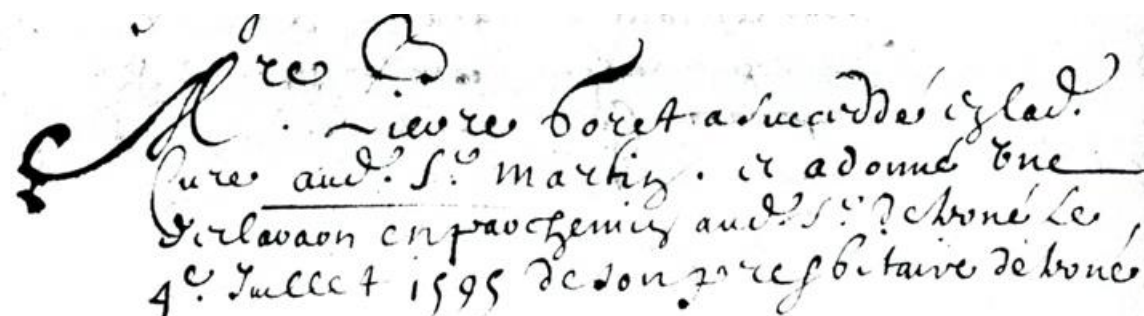 Mre Pierre Boret a succeddé en lad.
Cure aud. Sr. Martin. et a donné une
declaraon en parchemin aud. Sr. de                le
4e. Juillet 1595 de son presbitaire de